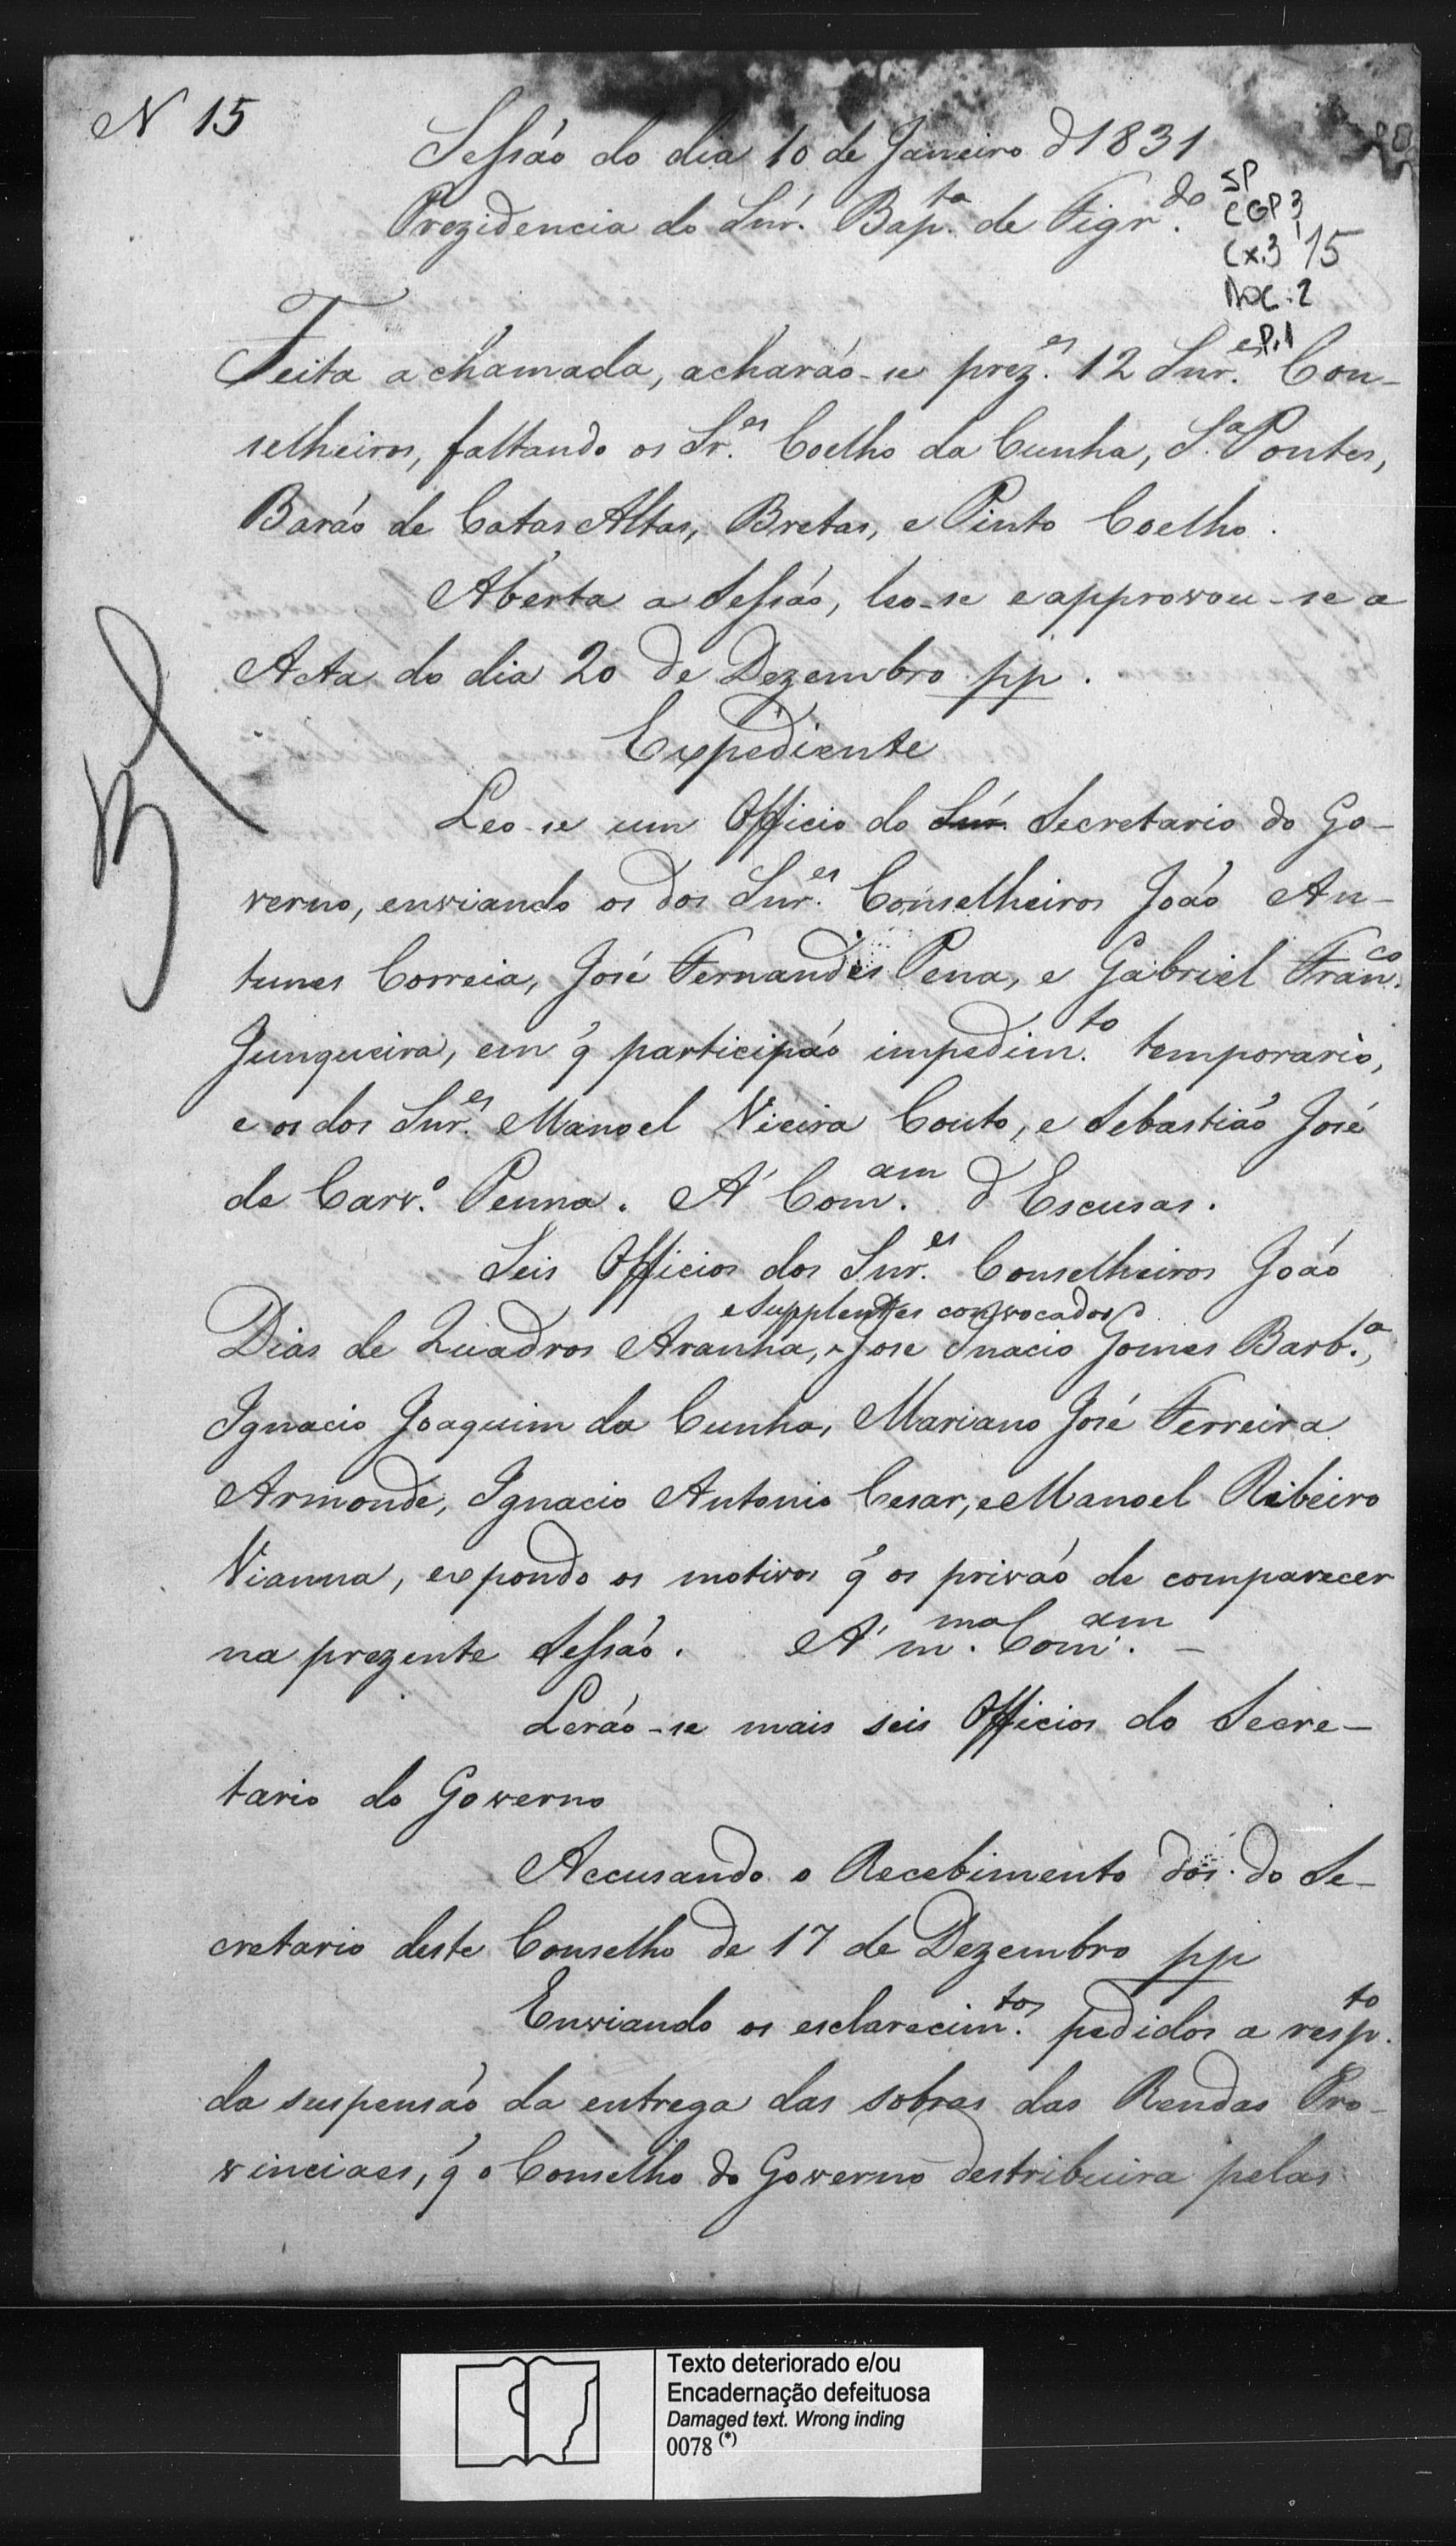 N 15
Sessão do dia 10 de Janeiro d 1831
Prezidencia do Snr. Bap.ta de Figr.do
SP
CGP 3
Cx.3 15
DOC. 2
P.1
Feita a chamada, acharão-se prez.es 12 Snr.es Con-
selheiros, faltando os Sr.es Coelho da Cunha, S.a Pontes,
Barão de Catas Altas, Bretas, e Pinto Coelho.
Aberta a Sessão, leo-se e approvou-se a
Acta do dia 20 de Dezembro pp.
Expediente
Leo-se um Officio do Snr. Secretario do Go-
verno, enviando os dos Snr.es Conselheiros João An-
tunes Correia, José Fernandes Pena, e Gabriel Fran.co
Junqueira, em q̃ participão impedim.to temporario,
e os dos Snr.es Manoel Vieira Couto, e Sebastião José
de Carv.o Penna. Á Com.am d Escusas.
Seis Officios dos Snr.es Conselheiros João
e Supplentes convocados
Dias de Quadros Aranha, Jose Inacio Gomes Barb.a,
Ignacio Joaquim da Cunha, Mariano José Ferreira
Armonde, Ignacio Antonio Cesar, e Manoel Ribeiro
Vianna, expondo os motivos q̃ os privão de comparecer
na prezente Sessão. Á m.ma Com.am -
Lerão-se mais seis Officios do Secre-
tario do Governo
Accusando o Recebimento dos do Se-
cretario deste Conselho de 17 de Dezembro pp
Enviando os esclarecim.tos pedidos a resp.to
da suspensão da entrega das sobras das Rendas Pro-
vinciaes, q̃ o Conselho do Governo destribuira pelas
Texto deteriorado e/ou
Encadernação defeituosa
Damaged text. Wrong inding
0078 (*)